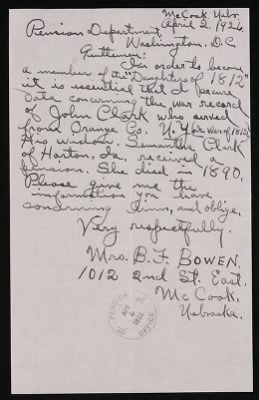 McCook, Nebr.
April 2, 1926.
Pension Department,
Washington, D.C.
Gentlemen:
In order to become
a member of the "Daughters of 1812"
it is essential that I secure
data concerning the war record
of John Clark who served
from Orange Co. N.Y. (in War of 1812)
His widow, Samantha Clark
of Horton, Ia. received a
pension. She died in 1890.
Please give me the
information you have
concerning him, and oblige,
Very respectfully,
Mrs. B. F. BOWEN.
1012 2nd St. East.
McCook,
Nebraska.
PENSION
APR
6
1926
U. S.
OFFICE